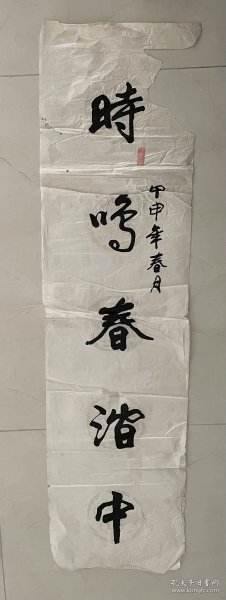 時鳴春澗中
甲申年春月
孔夫子旧书网
www.kongfz.com